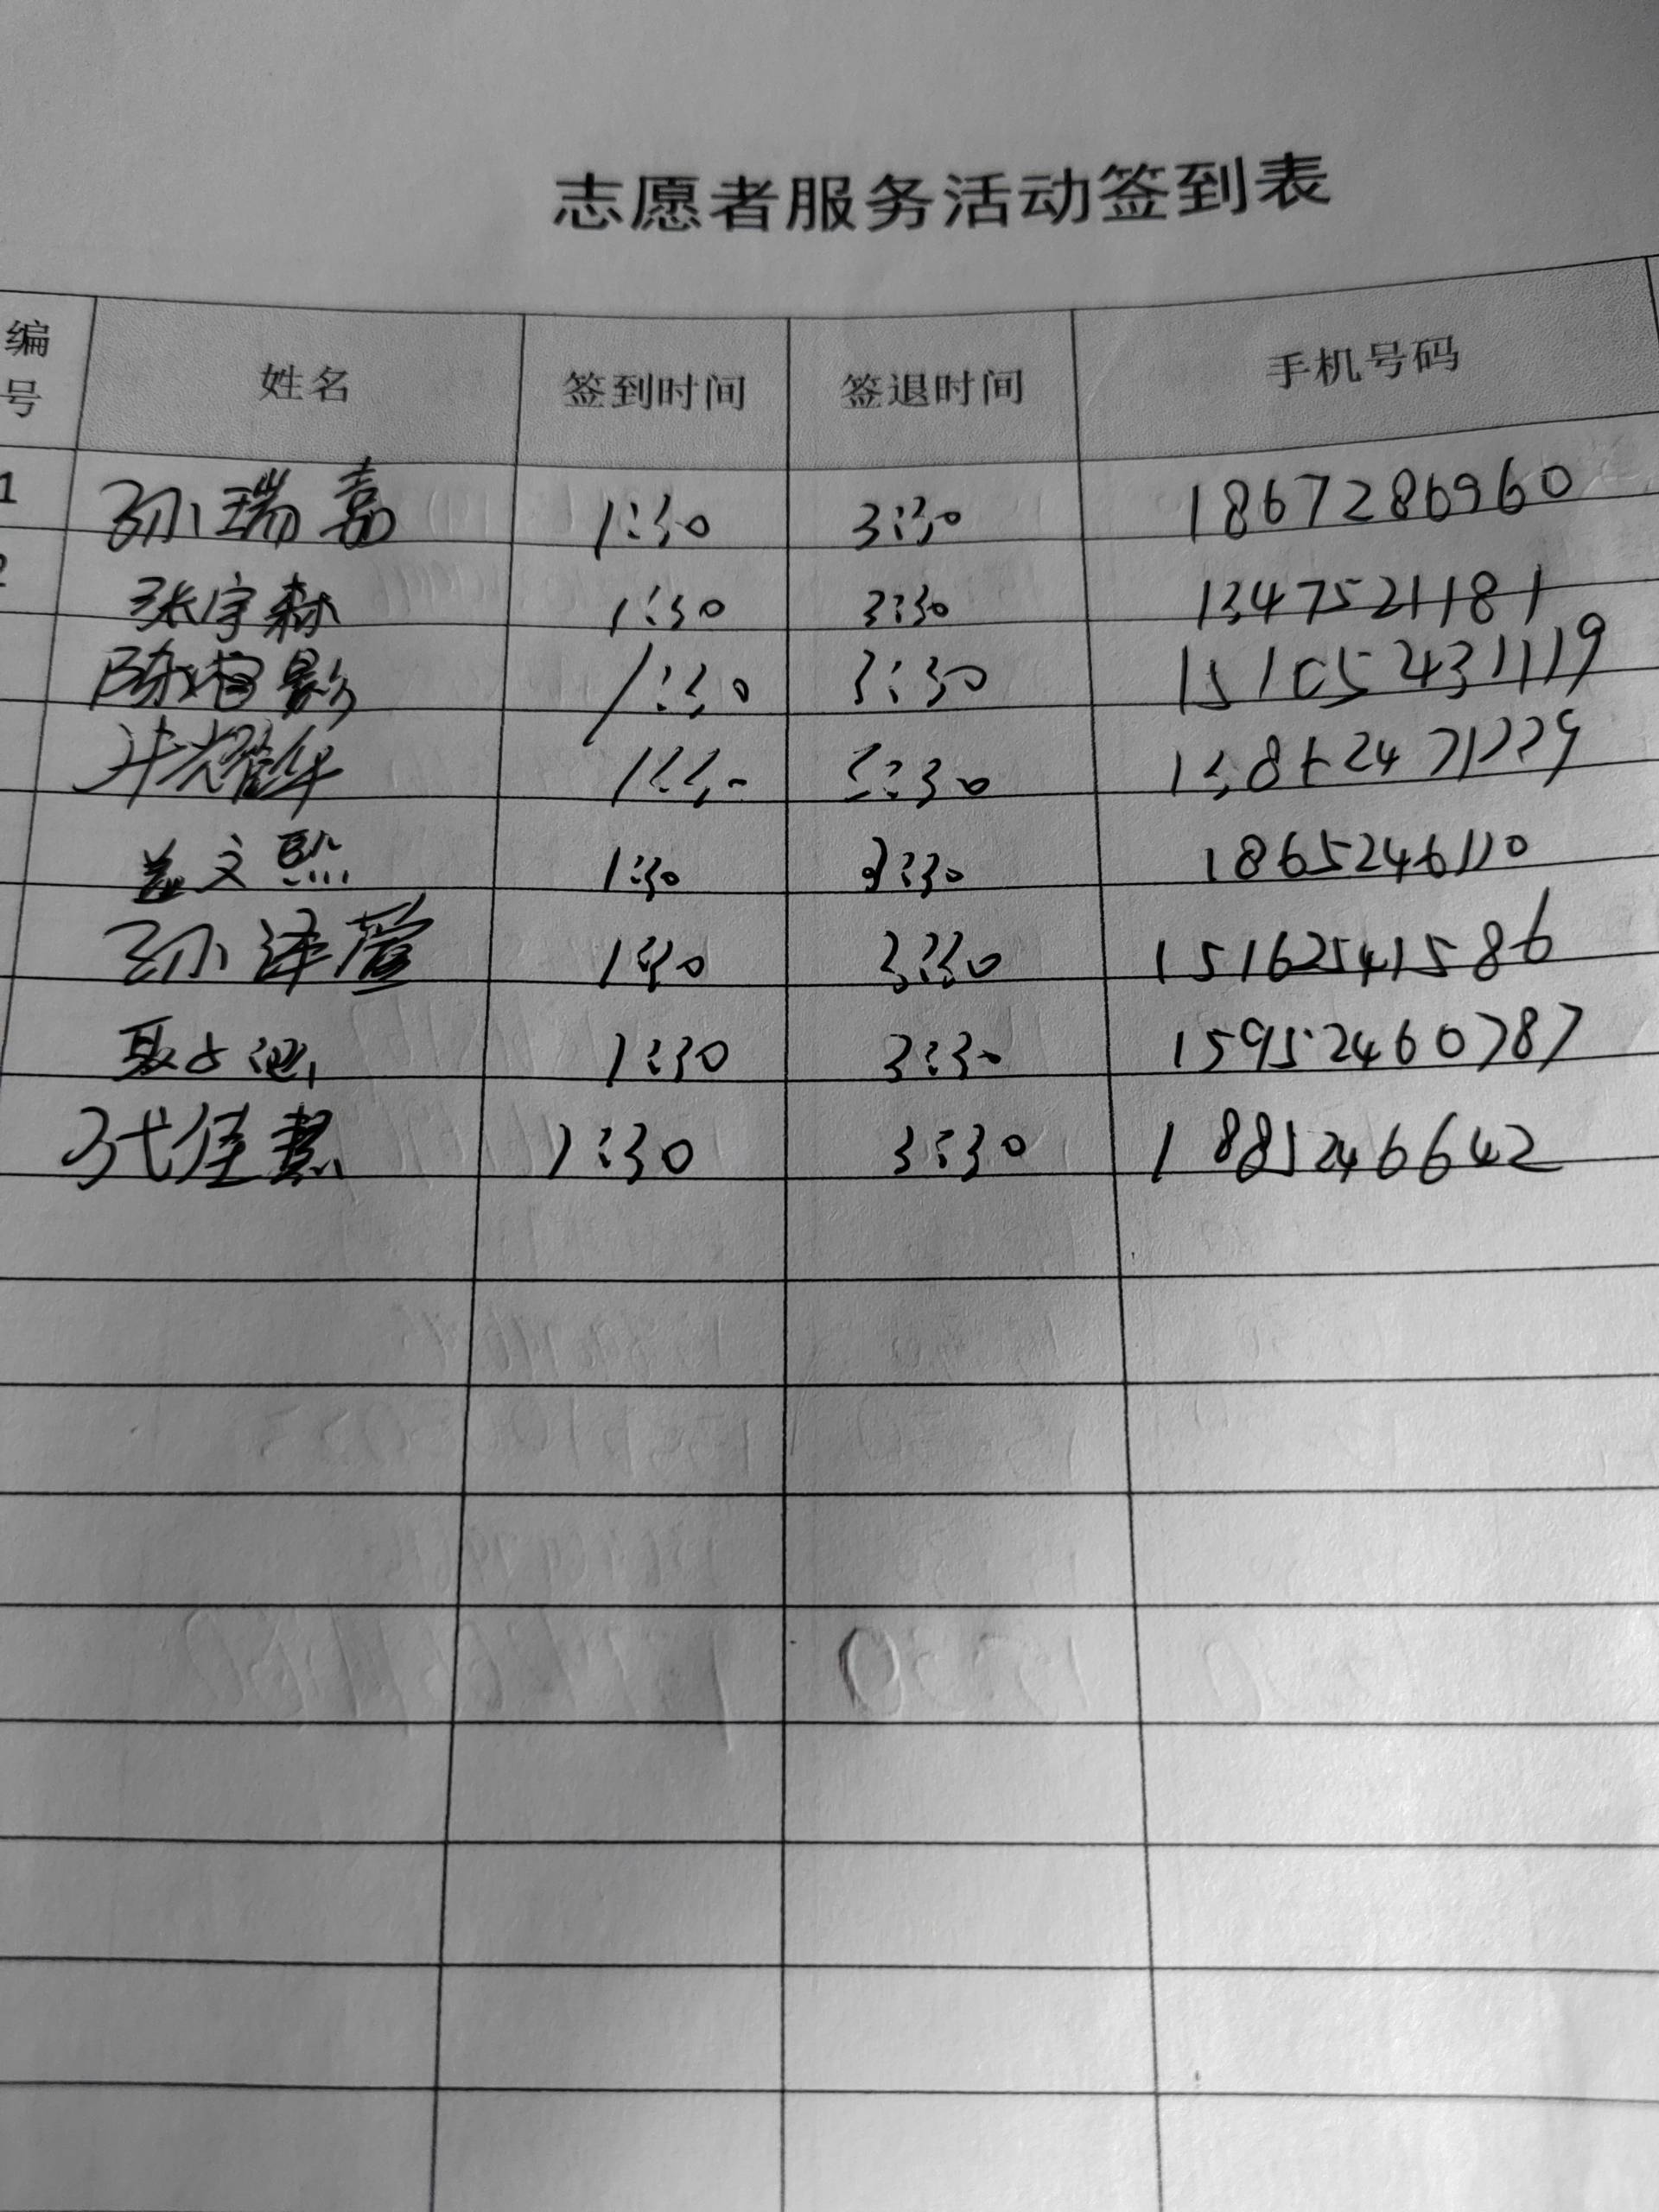 志愿者服务活动签到表
编号 姓名 签到时间 签退时间 手机号码
1 孙瑞嘉 1:30 3:30 1867286960
2 张宇森 1:30 3:30 13475211181
陈 影 1:30 3:30 151052431119
1:30 3:30
姜文熙 1:30 3:30 18652461110
孙泽萱 1:30 3:30 15162541586
1:30 3:30 15952460787
代佳慧 1:30 3:30 18852466642